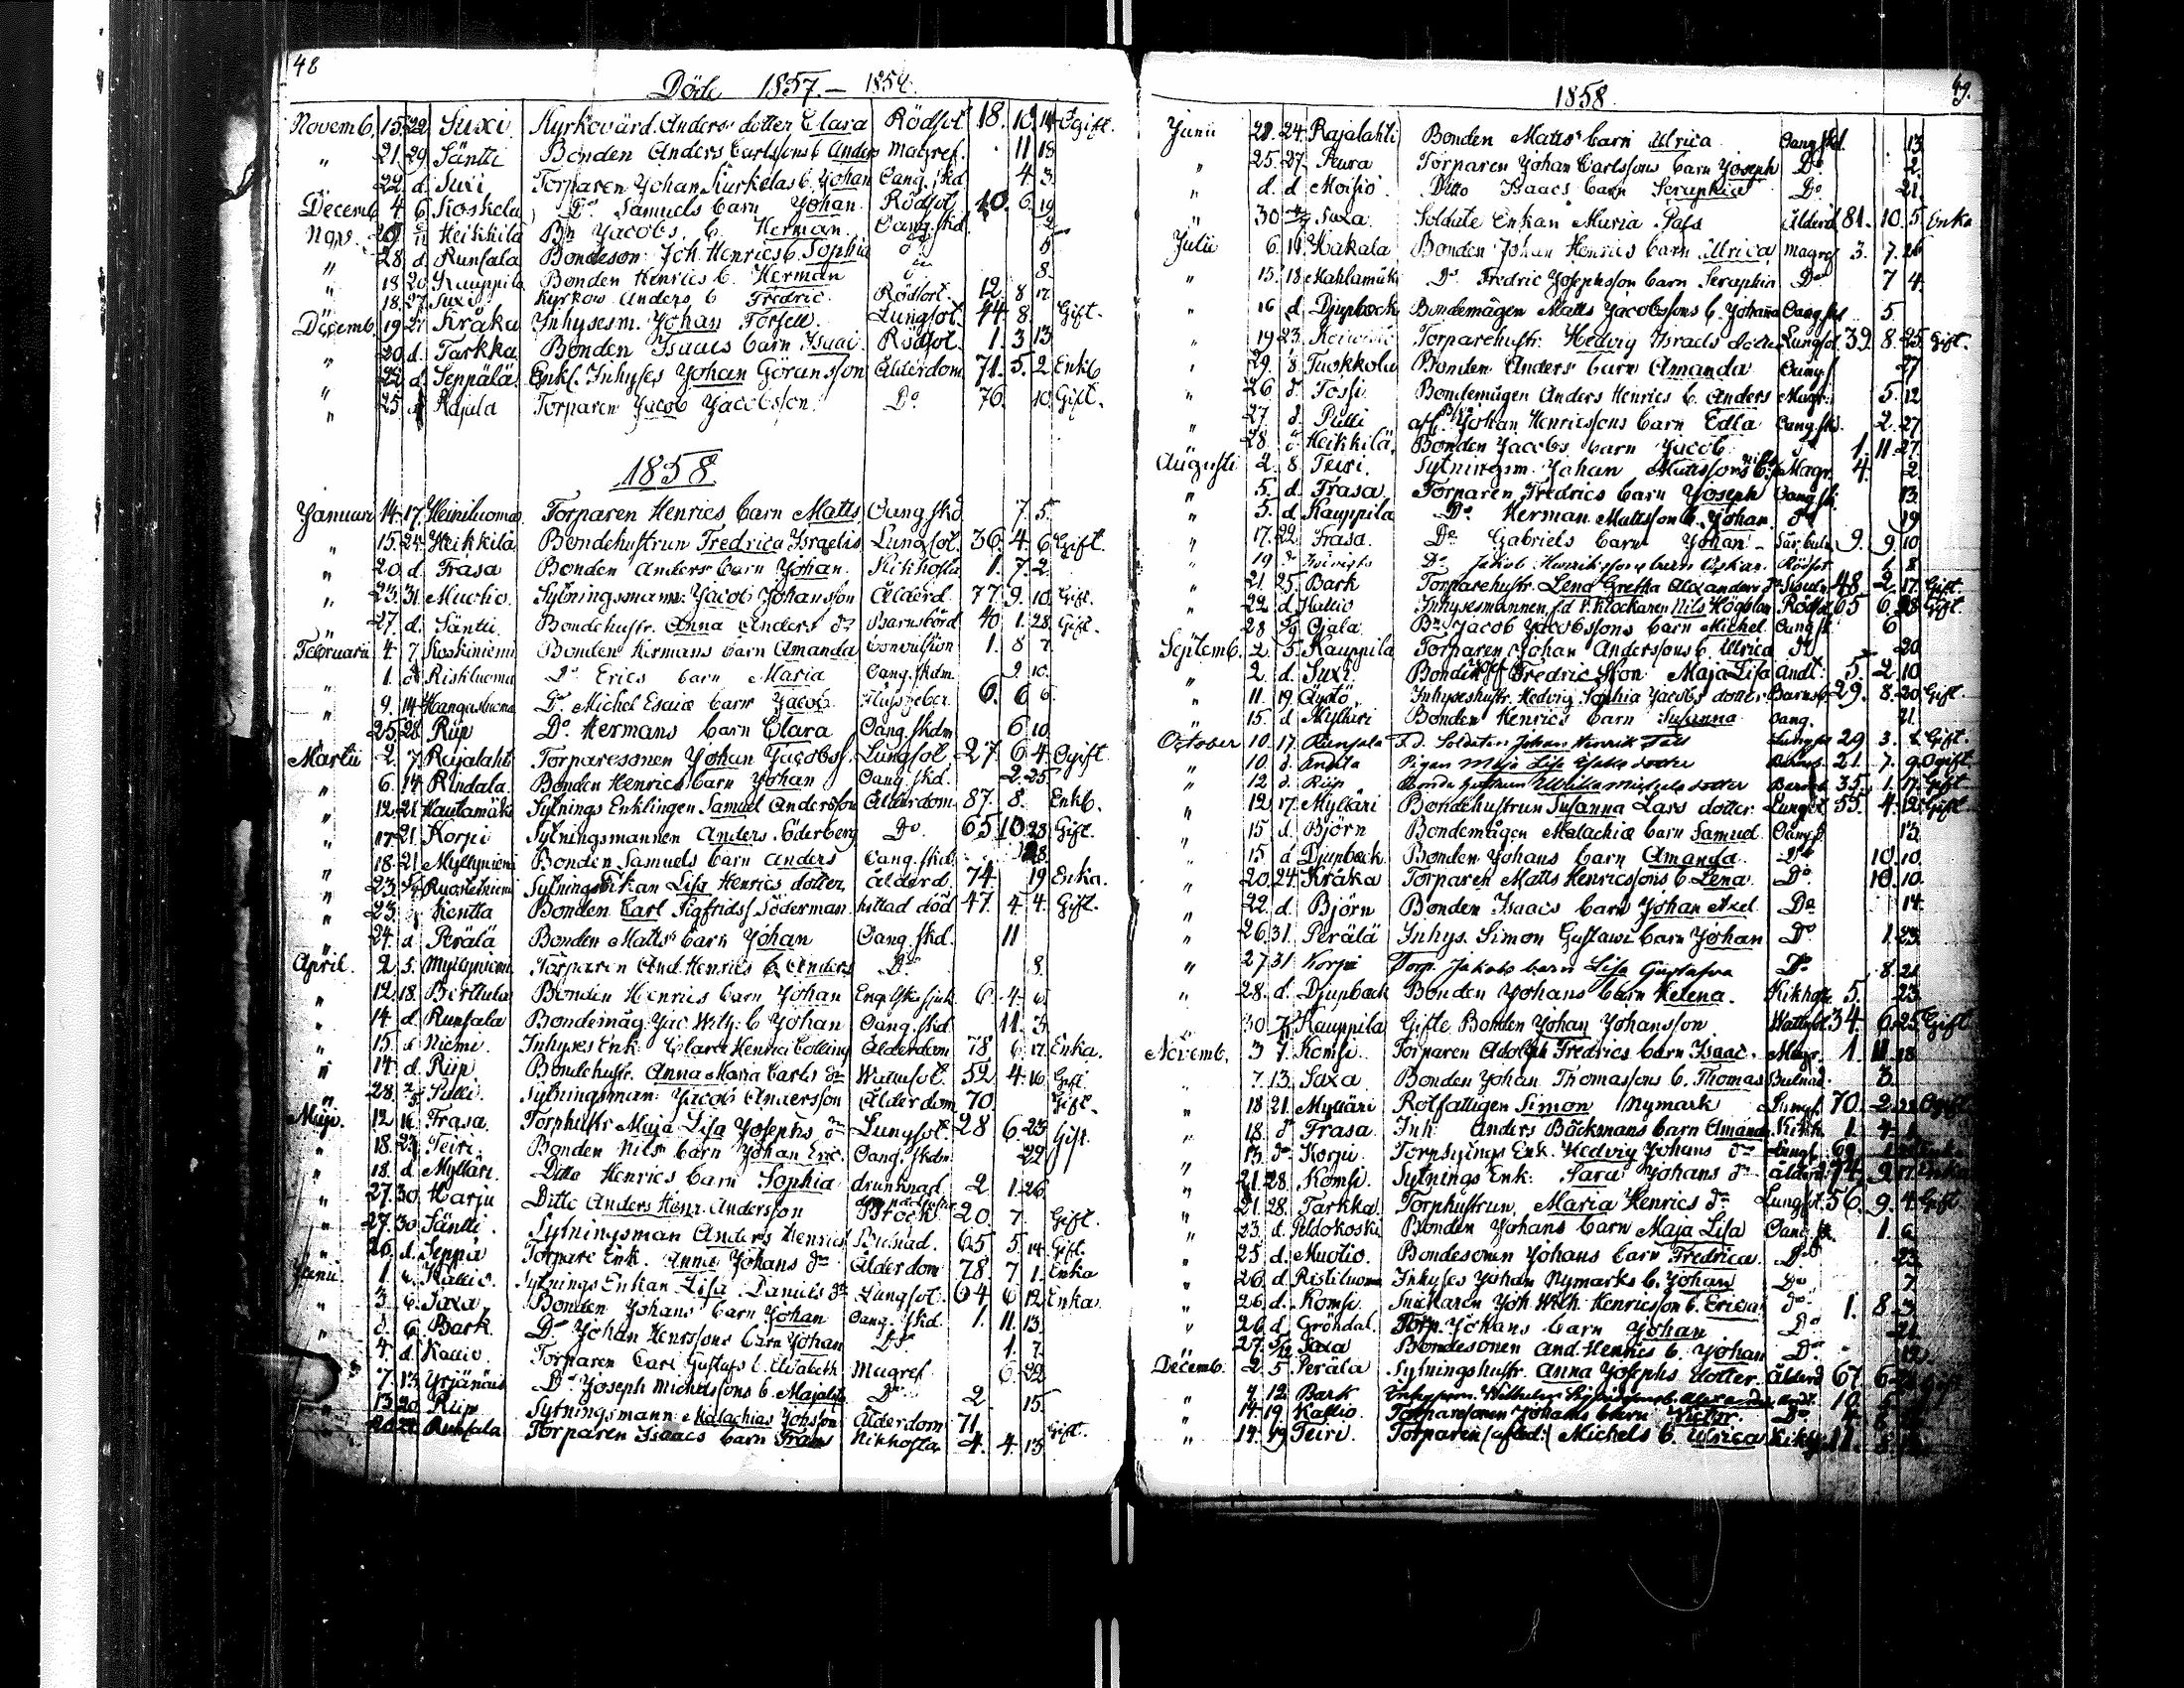 48
Döde 1857.– 1858.
Novemb. 15. 22 Suxi Kyrkovärd. Anders dotter Clara Rödsot. 18. 10. 14 Ogift.
" 21. 29. Säntti Bonden Anders Carlssons b. Anders Magref. 11 18
" 22. d. Suxi Torparen Johan Kiurkelas b. Johan Oang. skd 4. 3.
Decemb. 4. 6 Koskela Do Samuels barn Johan Rödsot. 10. 6. 19
Nov. Heikkilä Bn Jacobs b. Herman. Oang. skd. 2
" 28. d. Runsala Bondeson Joh. Henrics b. Sophia do 5
" 18 20 Kauppila Bonden Henrics b. Herman do 8.
" 18. 27. Suxi Kyrkov. Anders b Fredric. Rödsot. 12. 8 17.
Decemb. 19. 27 Kråka Inhysesm. Johan Forsell Lungsot. 44. 8. Gift.
" 20. d. Tarkka Bonden Isaacs barn Isaac. Rödsot. 1. 3 13
" 22 d. Seppälä Enkl. Inhyses Johan Göransson Ålderdom 71. 5. 2 Enkl
" 25. d Rajala Torparen Jacob Jacobsson. Do 76. 10. Gift.
1858.
Januari 14. 17. Heiniluoma Torparen Henrics barn Matts Oang. skd 7. 5.
" 15. 24. Heikkilä Bondehustrun Fredrica Israelis Lungsot. 36. 4. 6 Gift.
" 20. d. Frasa Bonden Anders barn Johan. Kikhosta 1. 7. 2.
" 23. 31. Muotio. Sytningsmann. Jacob Johansson Ålderd. 77. 9. 10. Gift.
" 27. d. Säntti Bondehustr. Anna Anders dr Barnsbörd 40 1. 28 Gift.
Februarii 4. 7. Koskiniemi Bonden Hermans barn Amanda Convulsion 1. 8 7.
" 1. d Ristiluoma Do Erics barn Maria Oang. skdm. 2 10.
" 9. 14 Hangasluoma Do Michel Esaiæ barn Jacob 6. 6 6
" 25. 28. Riip Do Hermans barn Clara Oang. skdm 6 10
Martii 2. 7. Rajalaht Torparesonen Johan Jacobss. Lungsot 27. 6 4. Ogift.
" 6. 14. Rindala. Bonden Henrics barn Johan Oang. skd. 2. 25
" 12. 21 Hautamäki Sytnings Enklingen Samuel Andersson Ålderdom 87. 8. Enkl.
" 17. 21. Korpi Sytningsmannen Anders Söderberg Do 65. 10. 28 Gift.
" 18. 21 Myllyniemi Bonden Samuels barn Anders Oang. skd. 28.
" 23. Ruohoniemi Sytnings Enkan Lisa Henrics dotter Ålderd. 74. 19 Enka.
" 23. Kentta Bonden Carl Sigfridss. Söderman. hittad död 47. 4. 4. Gift.
" 24. d. Perälä Bonden Matts barn Johan Oang. skd. 11
April. 2. 5. Myllyniemi Torparen And. Henrics b. Anders Do 8.
" 12. 18. Birttula Bonden Henrics barn Johan Engelska sjuk. 6. 4. 6
" 14. d. Runsala Bondemåg Jac. Wilh. b Johan Oang. skd. 11. 3.
" 15. d Niemi. Inhyses Enk. Clara Henrics Ålderdom 78 6 17. Enka.
" 14. d. Riip. Bondehustr. Anna Maria Carls dr Wattusot. 52 4. 16 Gift.
" 28. Pulli. Sytningsman: Jacob Andersson Ålderdom. 70. Gift.
Maji. 12 16. Frasa. Torphustr Maja Lisa Josephs dr Lungsot. 28 6. 23 Gift.
" 18. 23. Teiri. Bonden Nils barn Johan Eric. Oang. skdm 22
" 18. d. Mylläri. Ditto Henrics barn Sophia drunknad 2. 1. 26
" 27. 30. Harju Ditto Anders Henr. Andersson Bröck. 20 7. Gift.
" 27. 30. Säntti. Sytningsman Anders Henrics 65 5. 14. Gift.
" 26. d. Seppä Torpare Enk. Anna Johans dr Ålderdom 78 7 1. Enka
Junii. 1. 6. Kallio. Sytnings Enkan Lisa Daniels dr Lungsot. 64 6 12 Enka.
" 3. 6. Saxa. Bonden Johans barn Johan Oang. skd. 1. 11. 13.
" 6. Bark. Do Johan Henrssons barn Johan Do 1. 7.
4. d. Kallio. Torparen Carl Gustafs b. Elisabeth Magref 6. 22
7. 13. Yrjänäis Do Joseph Michelssons b. Majalisa Do 2. 15.
13 20. Riip Sytningsmann. Malachias Johsson Ålderdom 71. Gift.
20 22 Runsala Torparen Isaacs barn Frans Kikhosta 4. 4. 13
49.
1858.
Junii 21. 24. Rajalahti Bonden Matts barn Ulrica Oang. skd. 13.
" 25. 27. Peura Torparen Johan Carlssons barn Joseph Do 2.
" d. d Moisio Ditto Isaacs barn Seraphia Do 21.
" 30. 4/7 Saxa. Soldate Enkan Maria Pass Ålderd 81. 10. 5. Enka
Julii 6. 11. Hakala Bonden Johan Henrics barn Ulrica Magref 3. 7. 26
" 15. 18. Mahlamäki Do Fredric Josephsson barn Seraphia Do 7 4.
" 16 d. Djupback Bondemågen Matts Jacobssons b. Johanna Oang. skd 5.
" 19 23. Torparehustr. Hedvig Israels dotter Lungsot. 39. 8. 25. Gift.
" 29. 8 Tuokkola Bonden Anders barn Amanda Oang. s 27
" 26 d. Tossi. Bondemågen Anders Henrics b. Anders Magr. 5. 12
" 27. d. Pulli afl. Bn Johan Henricssons barn Edla Oang. skd. 2. 27
" 28. d Heikkilä. Bonden Jacobs barn Jacob. 1. 11. 27.
Augusti 2. 8. Teiri. Sytningsm. Johan Mattssons b. Magr. 4. 2.
" 5. d. Frasa. Torparen Fredrics barn Joseph Oang. sk. 13.
" 5. d Kauppila Do Herman Mattsson b. Johan. do 19
" 17. 22. Frasa. Do Gabriels barn Johan 9. 9. 10
" 19 Do Jakob Henrikssons barn Oskar. Rödsot. 1 8
" 21 25. Bark Torparehustr. Lena Gretha Alexanders dr 48 2. 17. Gift.
" 22. d. Kallio Inhysesmannen f.d v. klockaren Nils Högblom Rödsot 65 6. 28 Gift.
28 Ojala Bn Jacob Jacobssons barn Michel. Oang. sk. 6
Septemb. 2. 5. Kauppila Torparen Johan Anderssons b. Ulrica do 20
" 2 d. Suxi. Maja Lisa Andt. 5. 2. 10
" 11. 19. Äystö. Inhyseshustr. Hedvig Sophia Jacobs dotter Barnsb. 29. 8. 20. Gift.
" 15. d. Mylläri Bonden Henrics barn Susanna Oang. 21.
October 10. 17. Runsala F.d. Soldaten Johan Henrik Fält Lungsot 29 3. Gift.
" 10. d. Anttila Pigan Maja Lisa dotter 21. 7. 9. Ogift.
" 12 d. Riip Bonde hustrun Ulrika Michels dotter Barnsb. 35. 1. 17. Gift
" 12. 17. Mylläri Bondehustrun Susanna Lars dotter Lungst. 55. 4. 12. Gift
" 15 d. Björn Bondemågen Malachiæ barn Samuel Oang. s 13.
" 15. d. Djupback Bonden Johans barn Amanda. Do 10. 10.
" 20. 24. Kråka Torparen Matts Henricssons b. Lena. Do. 10. 10.
" 22. d. Björn Bonden Isaacs barn Johan Axel Do 14.
" 26. 31. Perälä Inhys. Simon Gustavs barn Johan Do. 1. 23.
" 27. 31 Korpi Torp. Jakobs barn Lisa Gustafva Do 8. 21
" 28. d. Djupback Bonden Johans barn Helena. Kikhost. 5. 23.
" 30. Kauppila Gifte Bonden Johan Johansson Wattusot 34. 6. 25. Gift
Novemb. 3 7. Komsi. Torparen Adolph Fredrics barn Isaac. Magr. 1. 11. 18
" 7. 13. Saxa Bonden Johan Thomassons b. Thomas 3.
" 18 21. Mylläri Rotfattigen Simon Nymark Lungs. 70. 2. 22. Ogift
" 18. do Frasa. Inh: Anders Bäckmans barn Amanda Kikh. 1. 4.
15. do Korpi Torpsytnings Enk. Hedvig Johans dr Lungs. 69.
" 21. 28. Komsi. Sytnings Enk: Sara Johans dr Ålderd 74. 9. 17. Enka
" 21. 28. Tarkka. Torphustrun Maria Henrics dr Lungsot. 56. 9. 4. Gift
" 23. d. Peldokoski Bonden Johans barn Maja Lisa Oang. sk. 1. 6
" 25. d. Muotio. Bondesonen Johans barn Fredrica. Do 23.
" 26. d. Ristiluoma Inhyses Johan Nymarks b. Johan Do 7
" 26. d. Komsi. Snickaren Joh. Wilh. Henricsson b. Erica do. 1. 8. 3.
" 26 d. Gröndal. Torp. Johans barn Johan Do 21.
" 27. 5/12 Saxa Bondesonen And. Henrics b. Johan Do. 12.
Decemb. 2. 5 Peräla Sytningshustr. Anna Josephs dotter. Ålderd 67. 6
" 7. 12. Bark 10.
" 14. 19. Kallio. Torparesonen Johans barn Victor. Do
" 14. 19 Teiri. Torparen /afled:/ Michels b. Ulrica Kikh. 11. 8